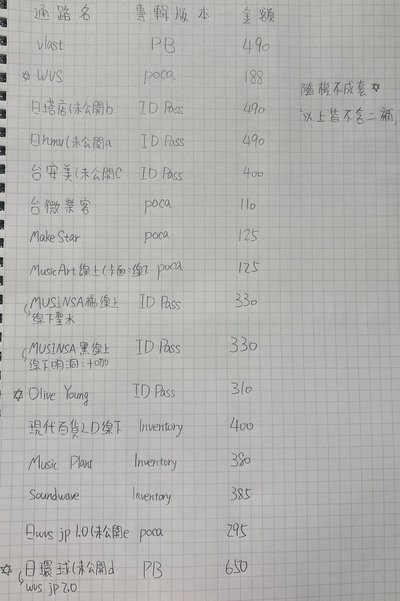 通路名 專輯版本 金額
vlast PB 490
☆ WVS poca 188
隨機不成套☆
以上皆不含二補
日塔店(未公開b ID Pass 490
日hmv(未公開a ID Pass 490
台安美(未公開C ID Pass 400
台微樂客 poca 110
Make Star poca 125
MusicArt 線上(卡面=線下 poca 125
MUSINSA橘線上 ID Pass 330
線下聖水
MUSINSA黑線上 ID Pass 330
線下明洞:+咖
☆ Olive Young ID Pass 310
現代百貨LD線下 Inventory 400
Music Plant Inventory 380
Soundwave Inventory 385
日wvs jp 1.0(未公開e poca 295
☆ 日環球(未公開d PB 650
wvs jp 2.0